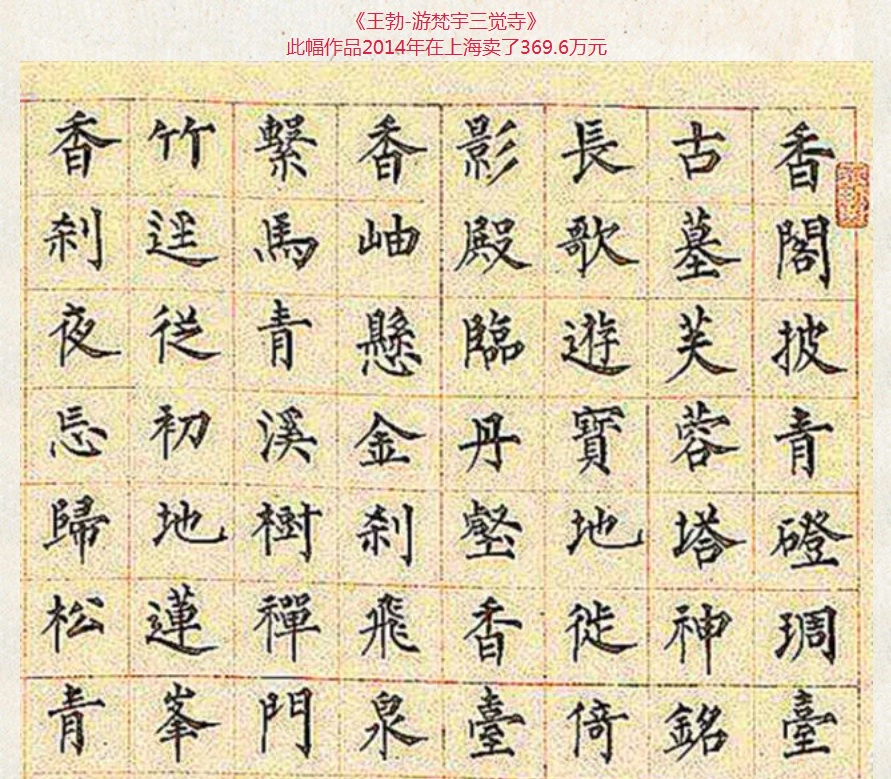 《王勃-游梵宇三觉寺》
此幅作品2014年在上海卖了369.6万元
香閣披青磴琱臺
古墓芙蓉塔神銘
長歌遊寶地徙倚
影殿臨丹壑香臺
香岫懸金刹飛泉
繫馬青溪樹禪門
竹逕從初地蓮峯
香刹夜忘歸松青